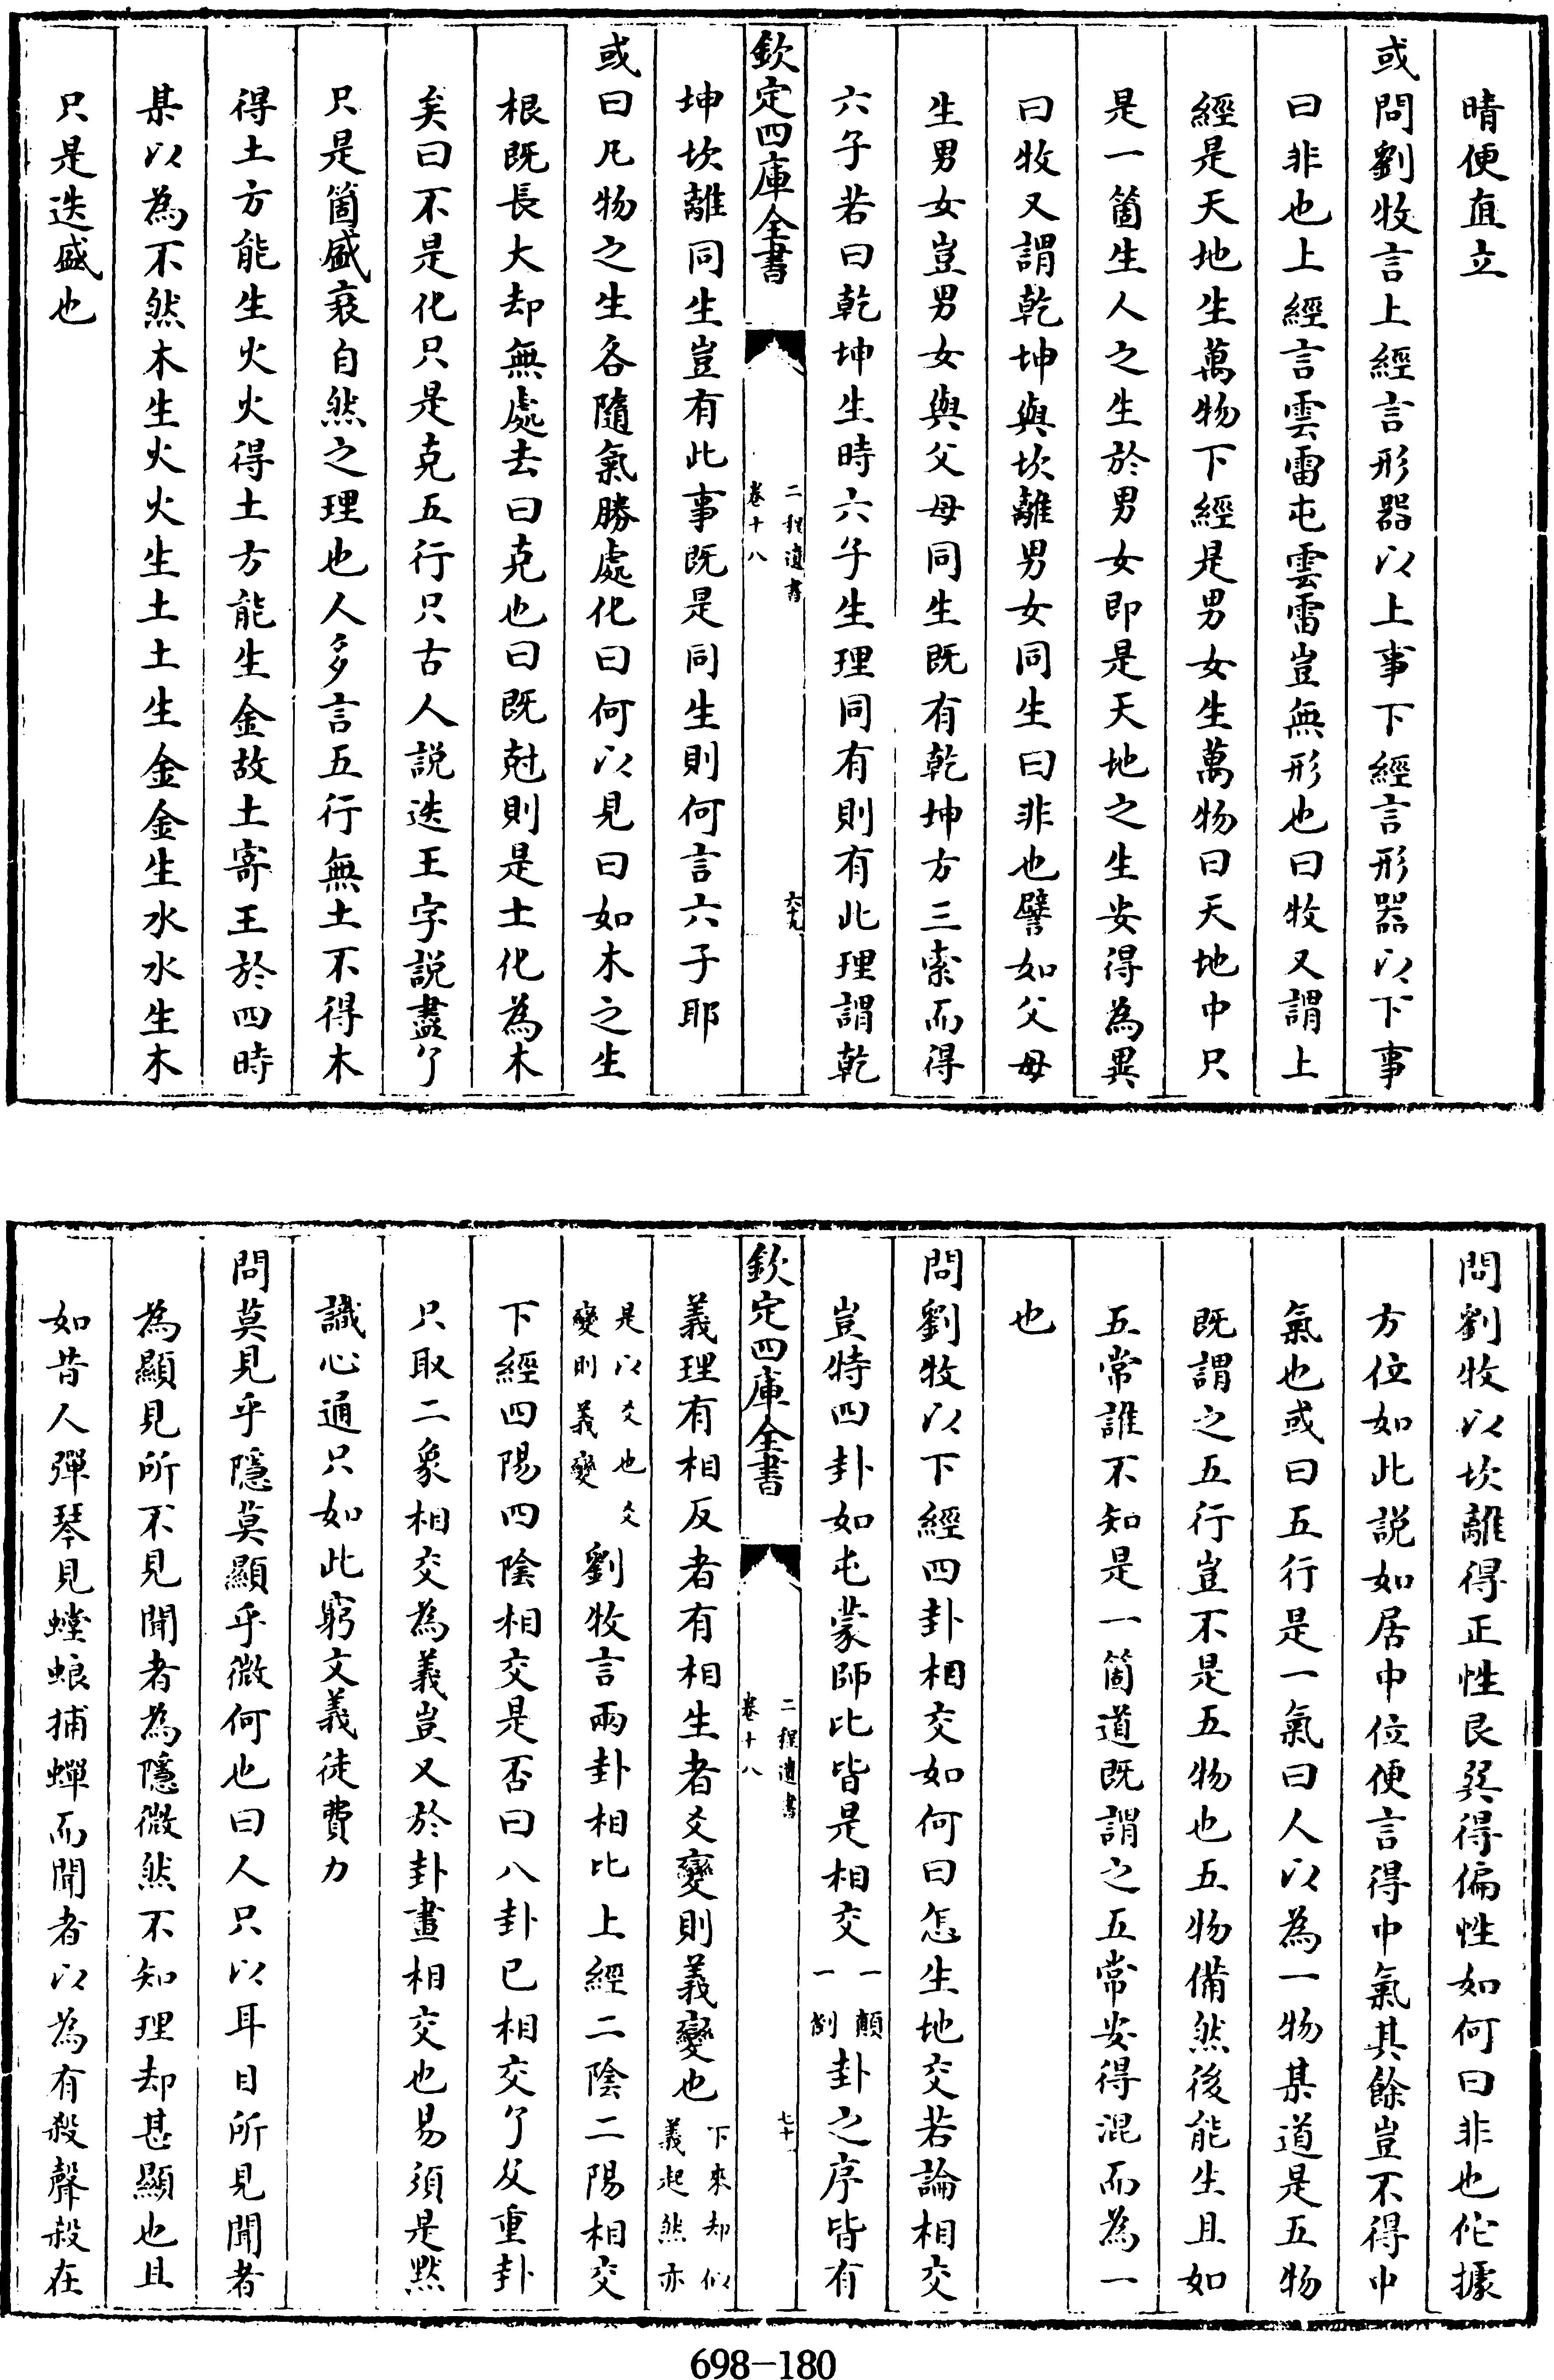 晴便直立
或問劉牧言上經言形器以上事下經言形器以下事
曰非也上經言雲雷屯雲雷豈無形也曰牧又謂上
經是天地生萬物下經是男女生萬物曰天地中只
是一箇生人之生於男女即是天地之生安得為異
曰牧又謂乾坤與坎離男女同生曰非也譬如父母
生男女豈男女與父母同生既有乾坤方三索而得
六子若曰乾坤生時六子生理同有則有此理謂乾
欽定四庫全書
二程遺書
卷十八
六十九
坤坎離同生豈有此事既是同生則何言六子耶
或曰凡物之生各隨氣勝處化曰何以見曰如木之生
根既長大却無處去曰克也曰既尅則是土化為木
矣曰不是化只是克五行只古人說迭王字說盡了
只是箇盛衰自然之理也人多言五行無土不得木
得土方能生火火得土方能生金故土寄王於四時
某以為不然木生火火生土土生金金生水水生木
只是迭盛也
問劉牧以坎離得正性艮巽得偏性如何曰非也佗據
方位如此說如居中位便言得中氣其餘豈不得中
氣也或曰五行是一氣曰人以為一物某道是五物
既謂之五行豈不是五物也五物備然後能生且如
五常誰不知是一箇道既謂之五常安得混而為一
也
問劉牧以下經四卦相交如何曰怎生地交若論相交
豈特四卦如屯蒙師比皆是相交一顛一倒卦之序皆有
欽定四庫全書
二程遺書
卷十八
七十
義理有相反者有相生者爻變則義變也下來却似義起然亦
是以爻也爻變則義變劉牧言兩卦相比上經二陰二陽相交
下經四陽四陰相交是否曰八卦已相交了及重卦
只取二象相交為義豈又於卦畫相交也易須是默
識心通只如此窮文義徒費力
問莫見乎隱莫顯乎微何也曰人只以耳目所見聞者
為顯見所不見聞者為隱微然不知理却甚顯也且
如昔人彈琴見螳蜋捕蟬而聞者以為有殺聲殺在
698-180